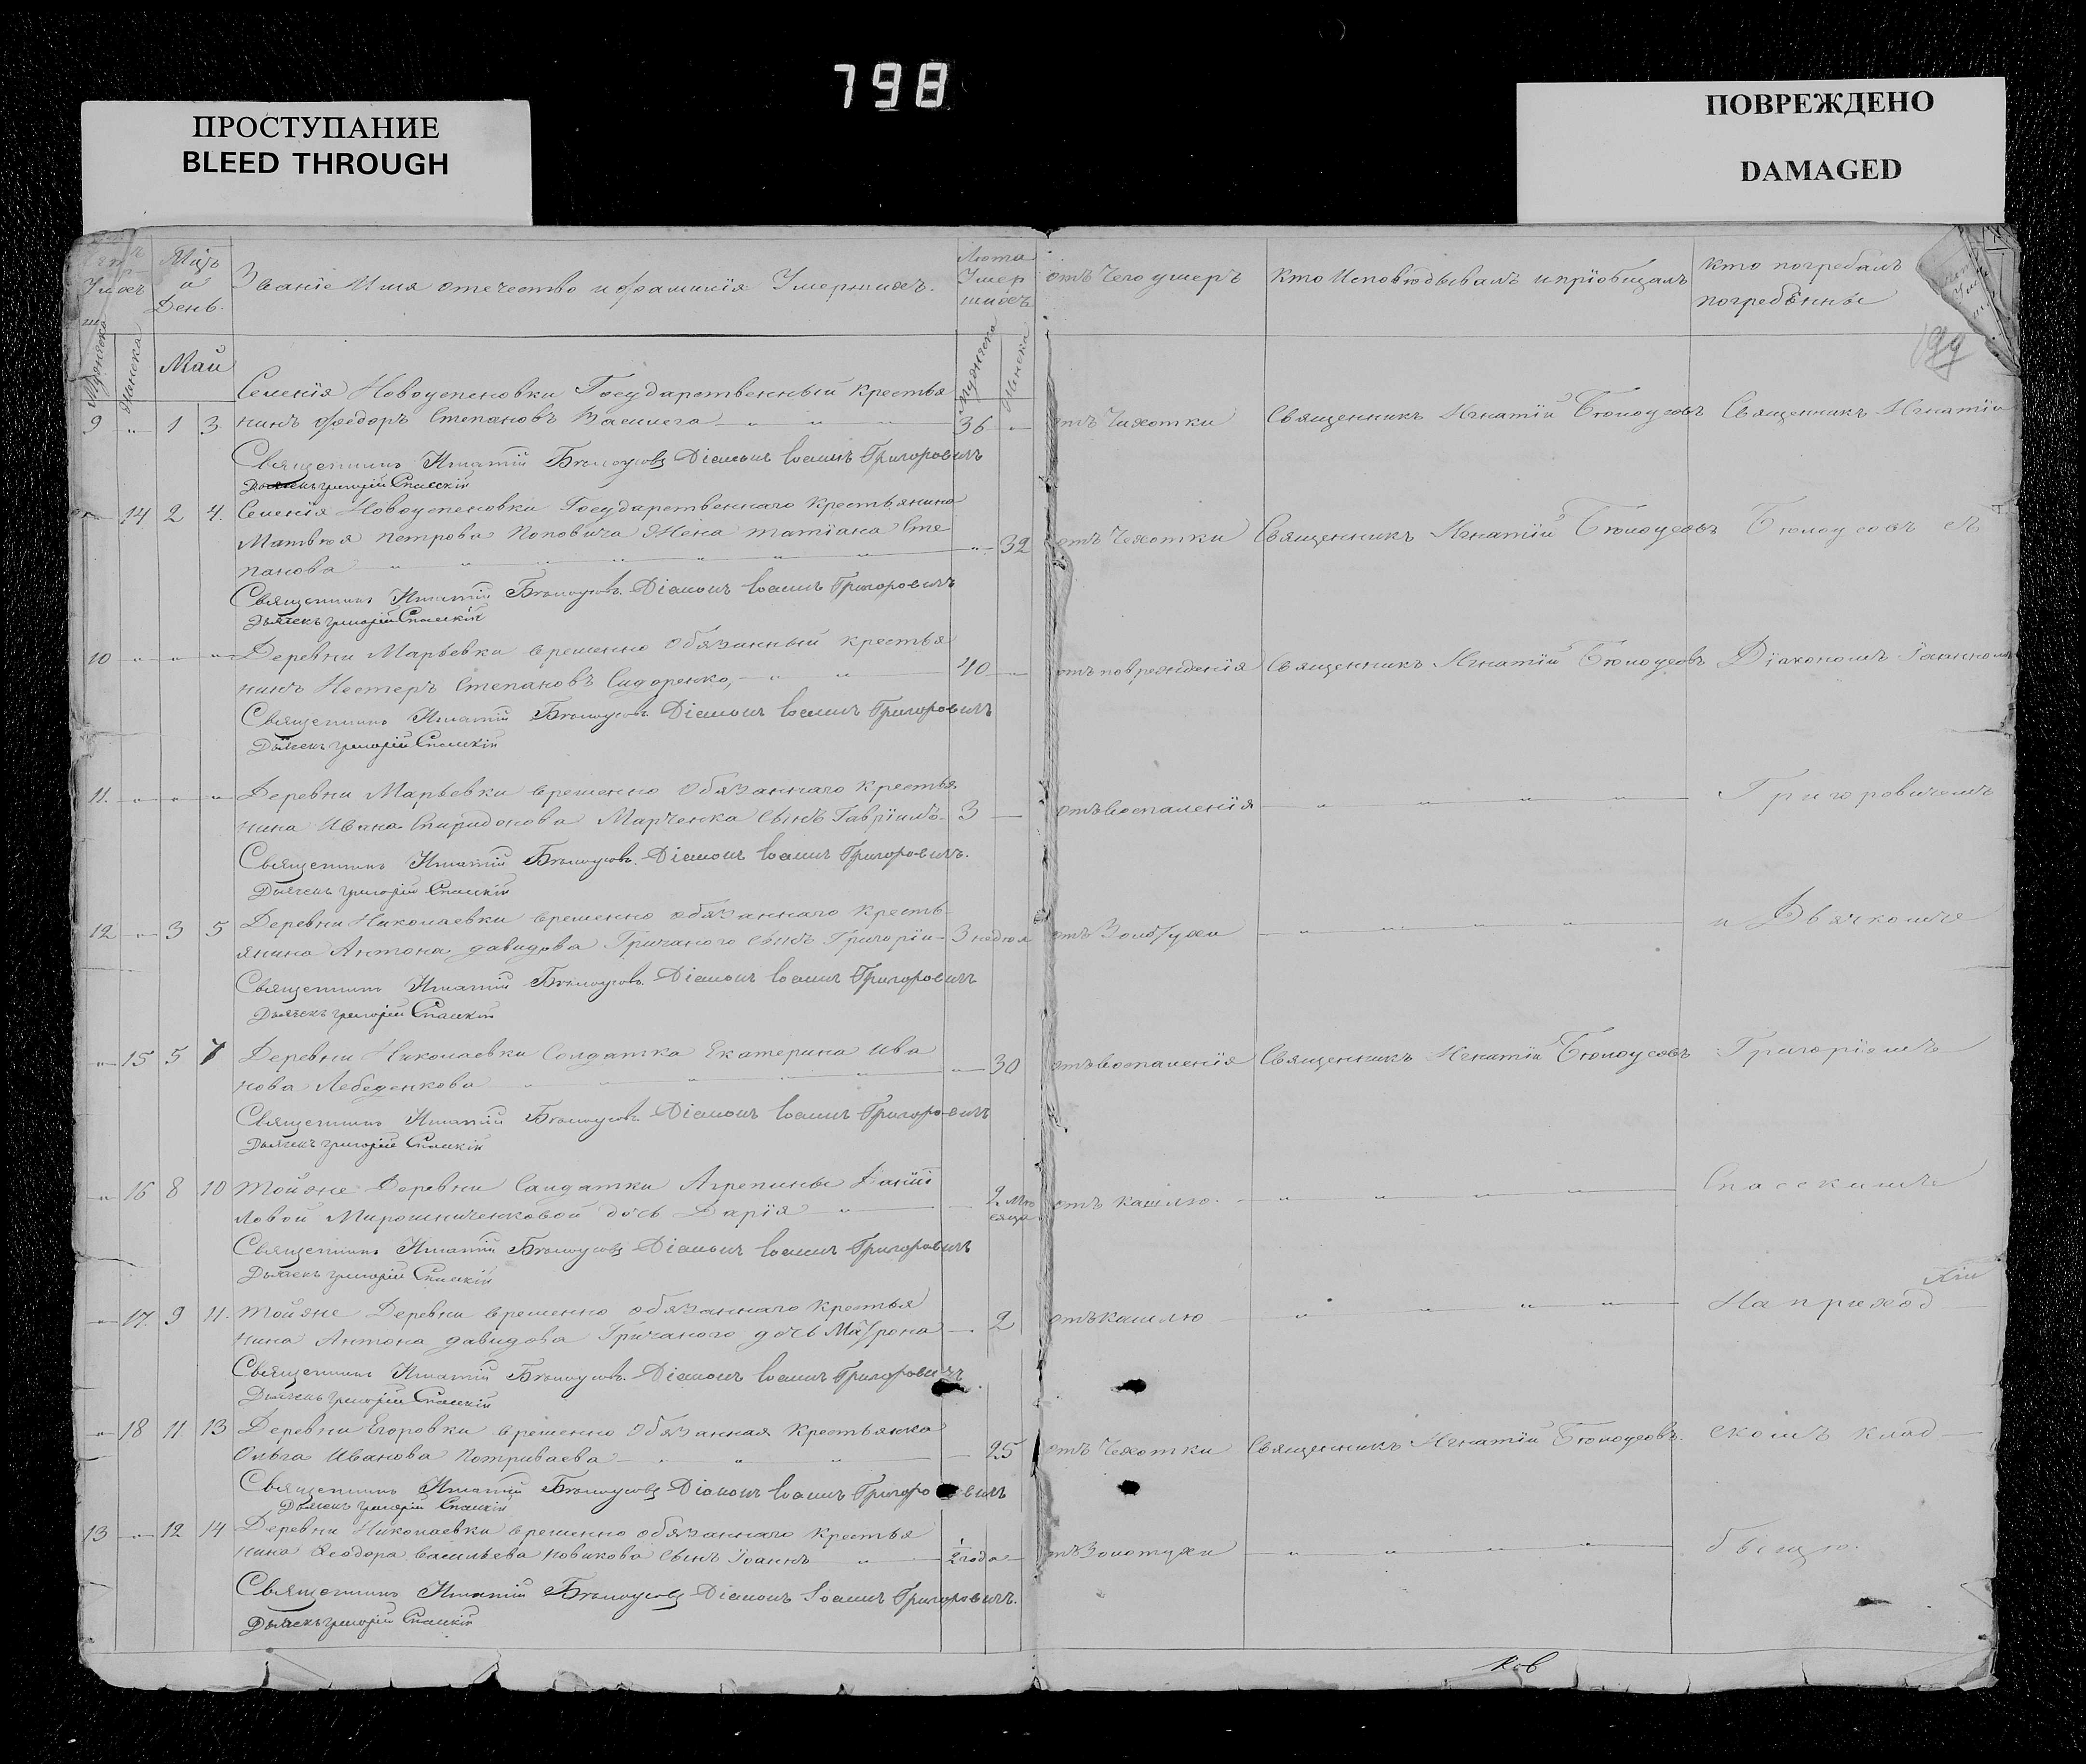 798
ПРОСТУПАНИЕ
BLEED THROUGH
ПОВРЕЖДЕНО
DAMAGED
Мць и День.
Званіе Имя отечество и фамилія Умершихъ.
Лѣта Умершихъ
отъ Чего умеръ
Кто Исповѣдывалъ и пріобщалъ
Кто погребалъ
погребѣнны
Мужеска
Женска
Май
Мужеска
Женска
199
Селенія Новоуспеновки Государственный крестья
9 " 1 3 нинъ Феодоръ Степановъ 36 " отъ Чихотки Священникъ Игнатій Бѣлоусовъ Священникъ Игнатій
Священникъ Игнатій Бѣлоусовъ Діаконъ Іоаннъ Григоровичъ
Дьячекъ Григорій Спасскій
14 2 4. Селенія Новоуспеновки Государственнаго Крестьянина
Матвѣя Петрова Поповича Жена Татіана Сте
панова " 32 отъ Чехотки Священникъ Игнатій Бѣлоусовъ Бѣлоусовъ
Священникъ Игнатій Бѣлоусовъ. Діаконъ Іоаннъ Григоровичъ
Дьячекъ Григорій Спасскій
10 " " " Деревни Марьевки временно Обязанный крестья
нинъ Нестеръ Степановъ Сидоренко, 40 отъ поврежденія Священникъ Игнатій Бѣлоусовъ Діакономъ Іоанномъ
Священникъ Игнатій Бѣлоусовъ Діаконъ Іоаннъ Григоровичъ
Дьячекъ Григорій Спасскій
11. " " " Деревни Марьевки временно Обязаннаго Крестья
нина Ивана Спиридонова Марченка Сынъ Гавріилъ 3 отъ воспаленія " " " " Григоровичемъ
Священникъ Игнатій Бѣлоусовъ. Діаконъ Іоаннъ Григоровичъ.
Дьячекъ Григорій Спасскій
12 " 3 5 Деревни Николаевки временно обязаннаго Кресть
янина Антона Давидова Гричаного Сынъ Григорій 3 недѣли отъ " " " " и Дьячкомъ
Священникъ Игнатій Бѣлоусовъ. Діаконъ Іоаннъ Григоровичъ
Дьячекъ Григорій Спасскій
" 15 5 7 Деревни Николаевки Солдатка Екатерина Ива
нова Лебеденкова 30 отъ воспаленія Священникъ Игнатій Бѣлоусовъ Григоріемъ
Священникъ Игнатій Бѣлоусовъ. Діаконъ Іоаннъ Григоровичъ
Дьячекъ Григорій Спасскій
" 16 8 10 Тойже Деревни Салдатки Агрепины Даніи
ловой Мирошниченковой дочь Дарія 2 мѣсяца отъ кашлю. " " " " Спасскимъ
Священникъ Игнатій Бѣлоусовъ Діаконъ Іоаннъ Григоровичъ
Дьячекъ Григорій Спасскій
" 17. 9 11. Тойже Деревни временно обязаннаго Крестья
нина Антона Давидова Гричаного дочь Матрона 2 отъ кашлю " " " " На приход
Священникъ Игнатій Бѣлоусовъ. Діаконъ Іоаннъ Григоровичъ
Дьячекъ Григорій Спасскій
" 18 11 13 Деревни Егоровки временно Обязанная Крестьянка
Ольга Иванова Потриваева 25 отъ Чехотки Священникъ Игнатій Бѣлоусовъ. скомъ клад
Священникъ Игнатій Бѣлоусовъ Діаконъ Іоаннъ Григоровичъ
Дьячекъ Григорій Спасскій
13 " 12 14 Деревни Николаевки временно обязаннаго Крестья
нина Феодора Васильева Новикова Сынъ Іоаннъ 1/2 года отъ Золотухи " " " " бьіщѣ.
Священникъ Игнатій Бѣлоусовъ Діаконъ Іоаннъ Григоровичъ.
Дьячекъ Григорій Спасскій